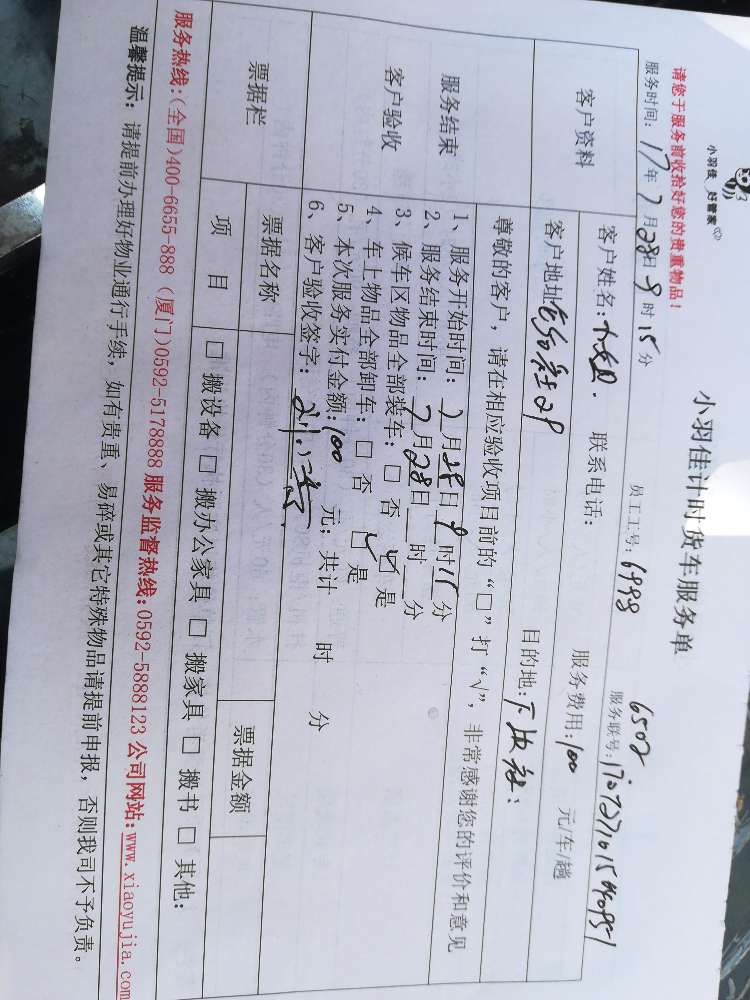 小羽佳 好管家
小羽佳计时货车服务单
请您于服务前收拾好您的贵重物品！
员工工号：6998 6502
服务时间：17年7月28日9时15分
服务联号：
客户资料
客户姓名： 联系电话： 服务费用：100 元/车/趟
客户地址： 目的地：
服务结束
客户验收
尊敬的客户，请在相应验收项目前的“□”打“√”，非常感谢您的评价和意见
1、服务开始时间：7月28日9时15分
2、服务结束时间：7月28日 时 分
3、候车区物品全部装车：□ 否 ☑ 是
4、车上物品全部卸车：□ 否 ☑ 是
5、本次服务实付金额：100 元；共计 时 分
6、客户验收签字：
票据栏
票据名称 票据金额
项 目 □ 搬设备 □ 搬办公家具 □ 搬家具 □ 搬书 □ 其他：
服务热线：（全国）400-6655-888（厦门）0592-5178888 服务监督热线：0592-5888123 公司网站：www.xiaoyujia.com
温馨提示：请提前办理好物业通行手续，如有贵重、易碎或其它特殊物品请提前申报，否则我司不予负责。